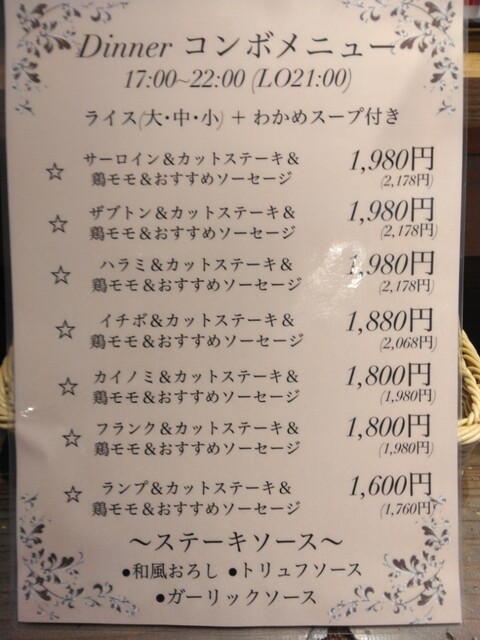 Dinner コンボメニュー
17:00~22:00 (LO21:00)
ライス(大・中・小) + わかめスープ付き
☆ サーロイン&カットステーキ& 1,980円
鶏モモ&おすすめソーセージ (2,178円)
☆ ザブトン&カットステーキ& 1,980円
鶏モモ&おすすめソーセージ (2,178円)
☆ ハラミ&カットステーキ& 1,980円
鶏モモ&おすすめソーセージ (2,178円)
☆ イチボ&カットステーキ& 1,880円
鶏モモ&おすすめソーセージ (2,068円)
☆ カイノミ&カットステーキ& 1,800円
鶏モモ&おすすめソーセージ (1,980円)
☆ フランク&カットステーキ& 1,800円
鶏モモ&おすすめソーセージ (1,980円)
☆ ランプ&カットステーキ& 1,600円
鶏モモ&おすすめソーセージ (1,760円)
〜ステーキソース〜
●和風おろし ●トリュフソース
●ガーリックソース